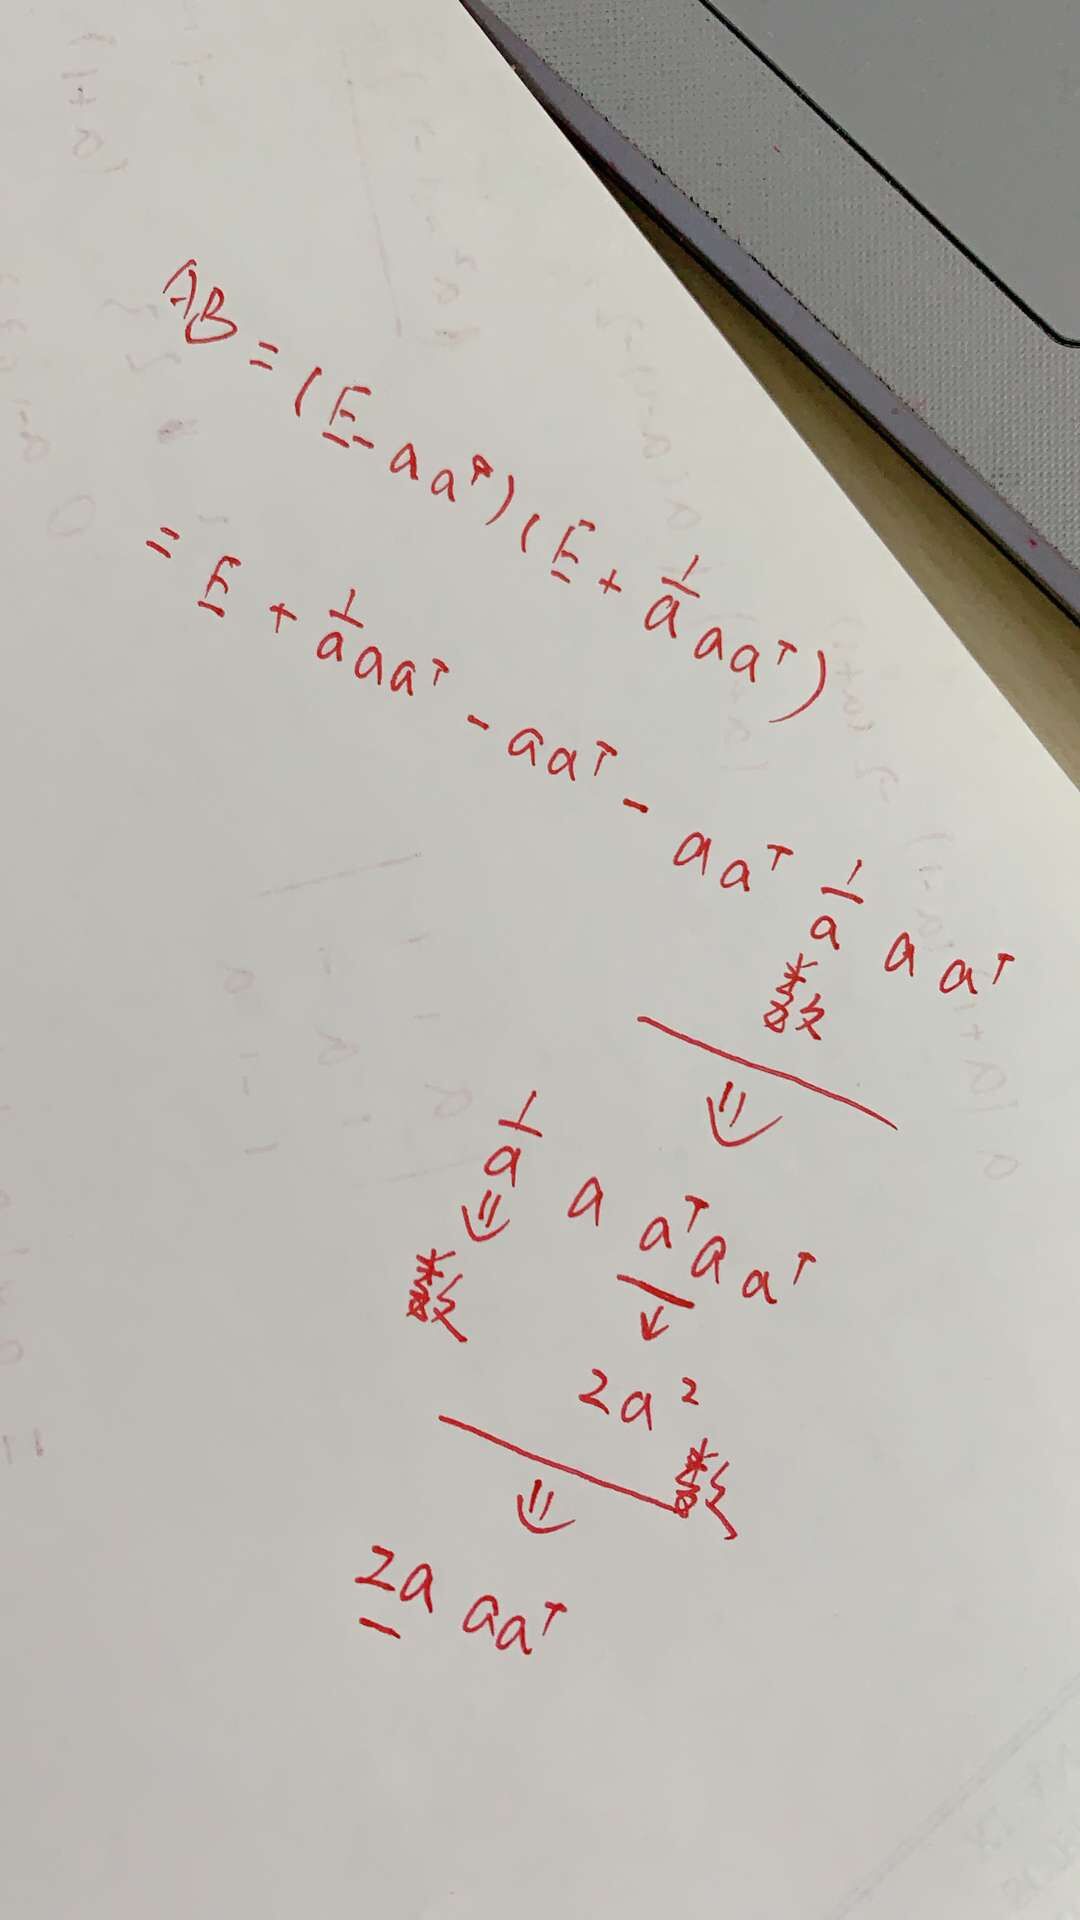 AB = (E - aaᵀ)(E + 1/a aaᵀ)
= E + 1/a aaᵀ - aaᵀ - aaᵀ 1/a a aᵀ
数
1/a a aᵀa aᵀ
数
2a²
数
2a aaᵀ